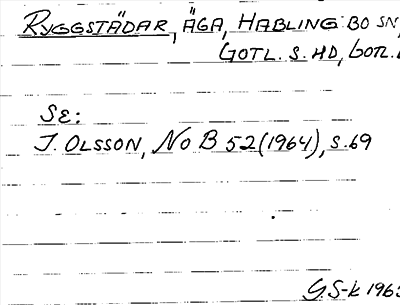 RYGGSTÄDAR, ÄGA, HABLINGBO SN,
GOTL. S. HD, GOTL.
SE:
I. OLSSON, NoB 52 (1964), S. 69
G. S-k 1963